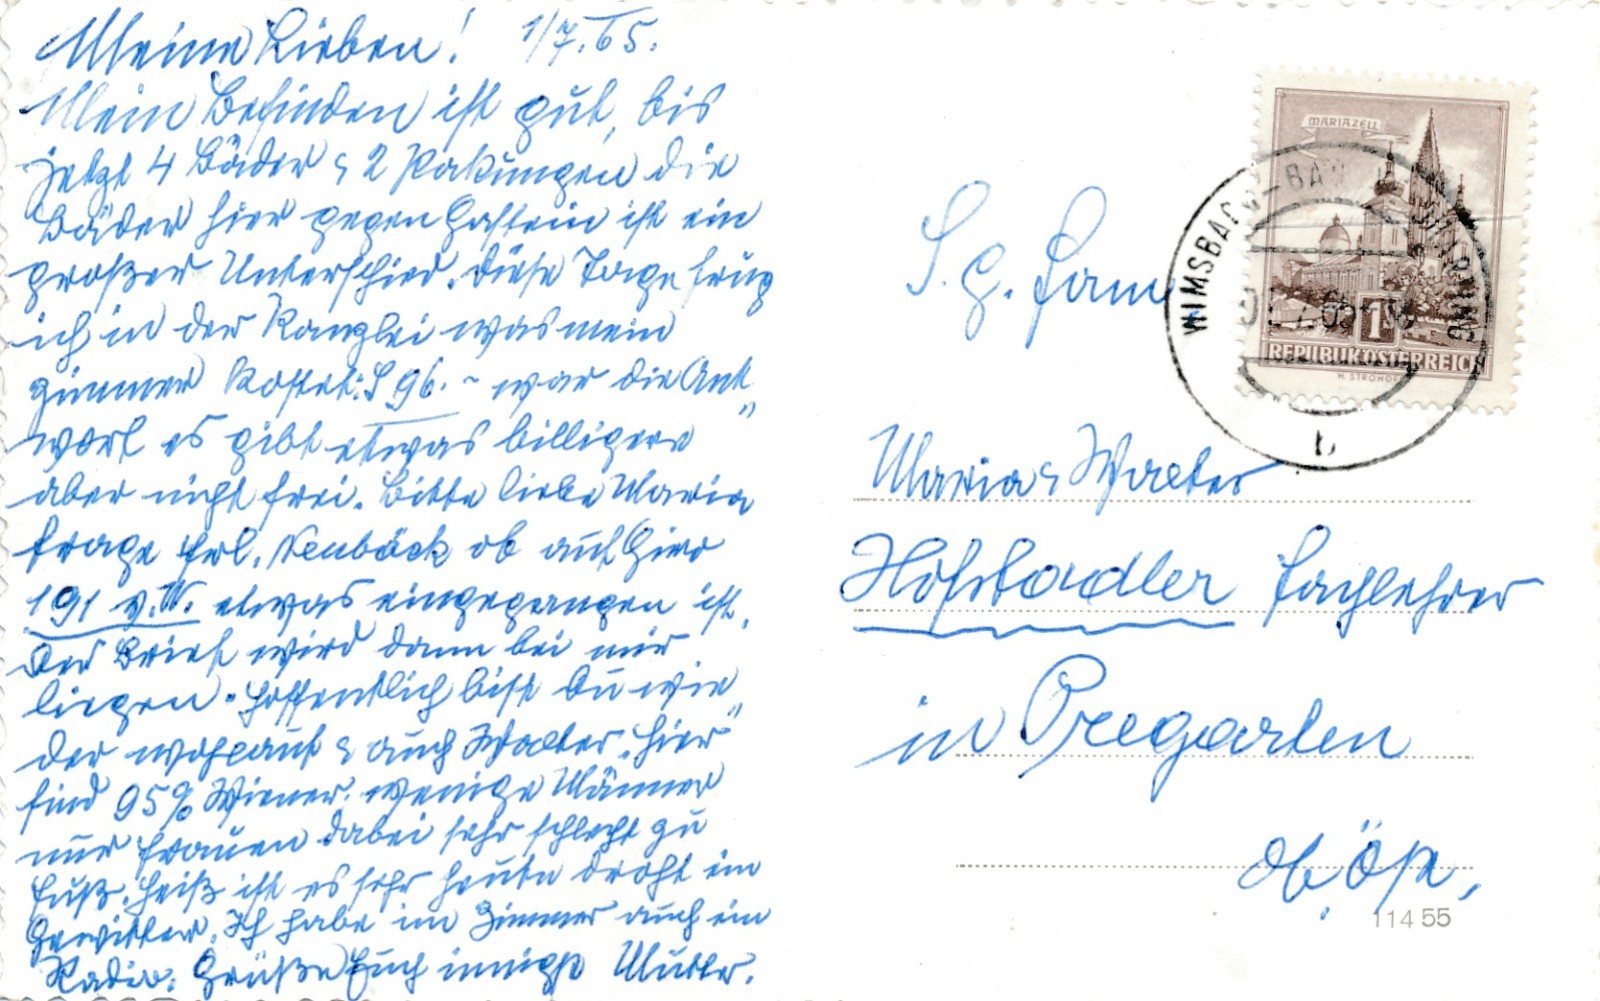 Meine Lieben! 1/7.65.
Mein Befinden ist gut, bis
jetzt 4 Bäder & 2 Pakungen die
Bäder hier gegen Gastein ist ein
großer Unterschied. Diese Tage frug
ich in der Kanzlei was mein
Zimmer kostet: S 96.- war die Ant„
wort es gibt etwas billigere
aber nicht frei. Bitte liebe Maria
frage Frl. Neubäck ob auf Giro
191 v.W. etwas eingegangen ist,
der Brief wird dann bei mir
liegen. Hoffentlich bist Du wie„
der wohlauf & auch Walter. Hier
sind 95% Wiener. wenige Männer
nur Frauen dabei sehr schlecht zu
Fuß. Heiß ist es sehr heute droht ein
Gewitter. Ich habe im Zimmer auch ein
Radio. Grüße Euch innigst Mutter.
MARIAZELL
1
REPUBLIK ÖSTERREICH
WIMSBACH-
b
S. g. Fam
Maria & Walter
Hofstadler Fachlehrer
in Pregarten
Ob. Öst.
114 55